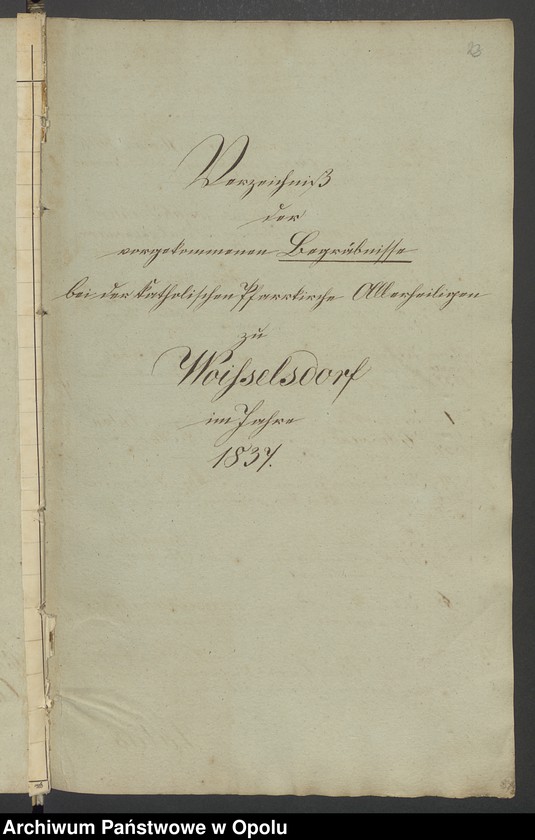 23
Verzeichniß
der
vorgekommenen Begräbnisse
bei der katholischen Pfarrkirche Allerheiligen
zu
Woisselsdorf
im Jahre
1837.
Archiwum Państwowe w Opolu